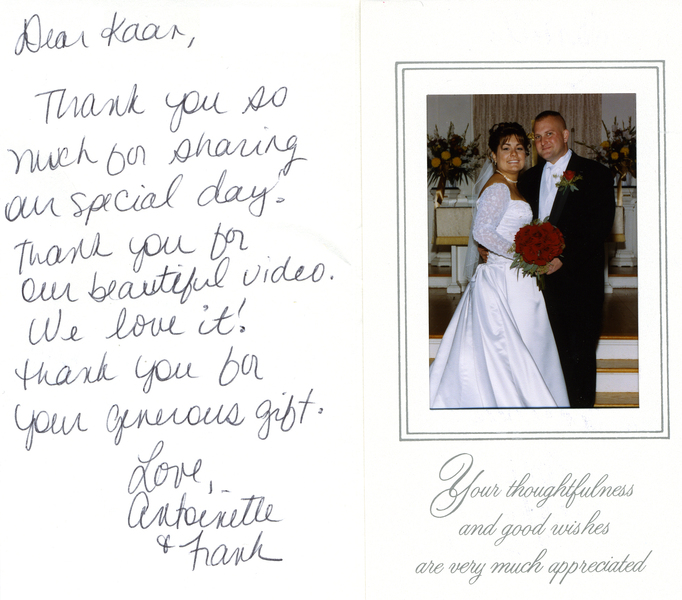 Dear Kaan,
Thank you so
much for sharing
our special day!
Thank you for
our beautiful video.
We love it!
thank you for
your generous gift.
Love,
Antoinette
& Frank
Your thoughtfulness
and good wishes
are very much appreciated